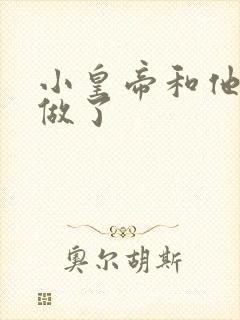 小皇帝和他
做了
奥尔胡斯